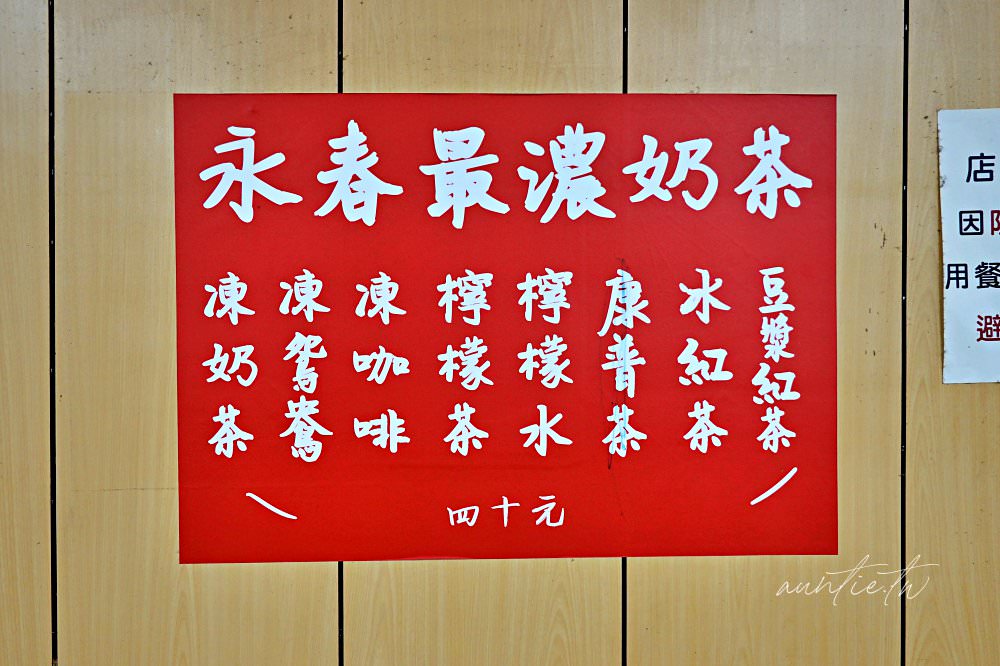 永春最濃奶茶
凍奶茶
凍鴛鴦
凍咖啡
檸檬茶
檸檬水
康普茶
冰紅茶
豆漿紅茶
四十元
店
因
用餐
避
auntie.tw